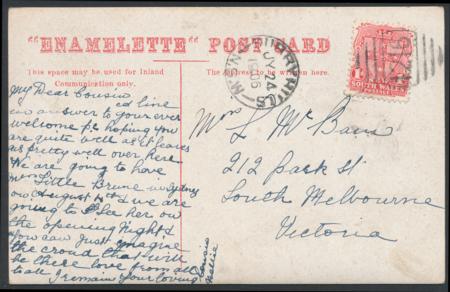 "ENAMELETTE" POST CARD
This space may be used for Inland
Communication only.
The Address to be written here.
SURRY HILLS
JY 24
1906
N.S.W
SOUTH WALES
My Dear Cousin
line
in answer to your ever
welcome pc hoping you
are quite well as it leaves
us pretty well over here
We are going to have
Little Brune in Sydney
on August 4th & we are
going to see her on
the opening night &
you can just imagine
the croud that will
be there love from all
to all I remain your loving
cousin
Mrs L Mc
212 Park St
South Melbourne
Victoria